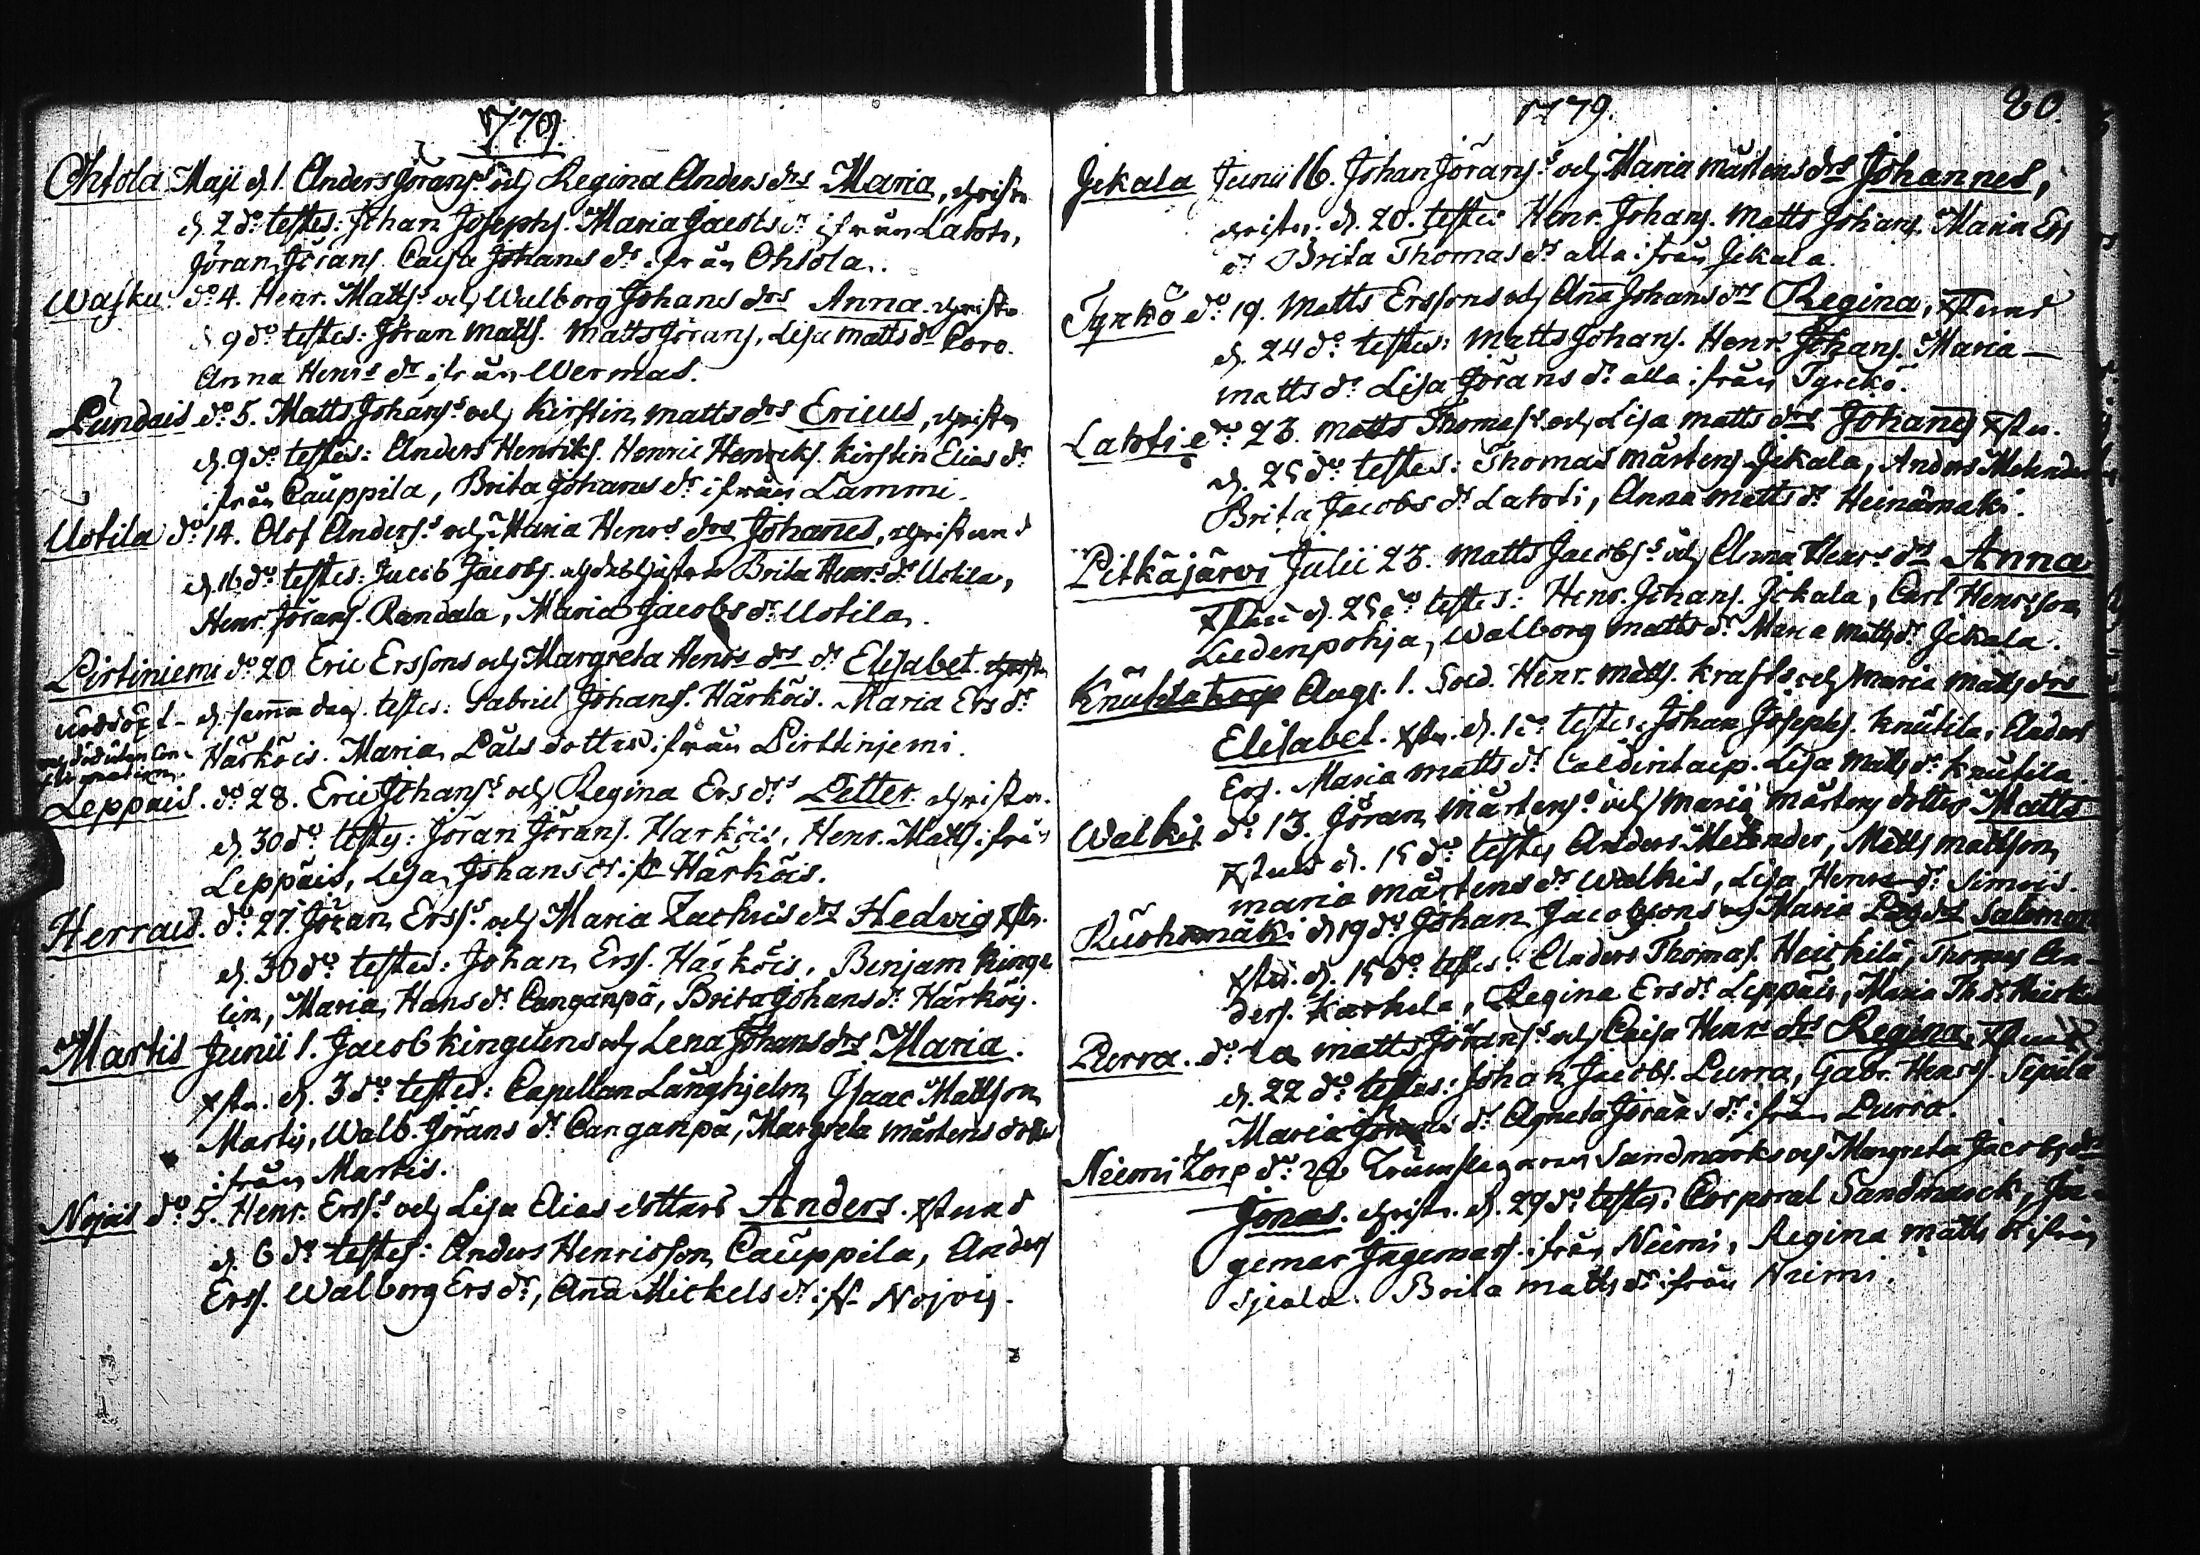 1779.
Ohtola Maji d. 1. Anders Jöransˢ och Regina Anders drs Maria, christn
d. 2 do testes: Johan Josephs. Maria Jacobs dr ifrån Lahoti,
Jöran Jörans. Caisa Johans dr ifrån Ohtola.
Wasku do 4. Henr. Mattsˢ och Walborg Johans drs Anna christn
d. 9 do testes: Jöran Matts. Matts Jörans. Lisa Matts dr Coro.
Anna Henrs dr ifrån Wermas.
Pundais do 5. Matts Johansˢ och Kirstin Matts drs Ericus, christn
d. 9 do testes: Anders Henriks. Henric Henriks. Kirstin Elias dr
ifrån Cauppila, Brita Johans dr ifrån Lammi.
Uotila do 14. Olof Andersˢ och Maria Henrs drs Johanes, christend
d. 16 do testes: Jacob Jacobs. och dess hustru Brita Henrs dr Uotila,
Henr. Jörans. Randala, Maria Jacobs dr Uotila.
Pirtiniemi do 20 Eric Erssons och Margreta Henrs drs dr Elisabet. christn
nöddöpt d. samma dag. testes: Gabriel Johans. Härköis. Maria Ers dr
och död utan con-
firmation. Härköis. Maria Påls dotter ifrån Pirttinjemi.
Leppäis. do 28. Eric Johansˢ och Regina Ers drs Petter christn.
d. 30 do testes: Jöran Jörans. Harköis, Henr. Matts. ifrån
Leppäis, Lisa Johans dr ifr Härköis.
Herrais. do 27. Jöran Erssˢ och Maria Zachris drs Hedvig xstn.
d. 30 do testes: Johan Erss. Härköis, Benjam Kinge
lin, Maria Hans dr Canganpä, Brita Johans dr Härköis.
Martis Junii 1. Jacob Kingelens och Lena Johans drs Maria.
xstn. d. 3 do testes: Capellan Långhjelm, Isaac Mattson
Martis, Walb. Jörans dr Canganpä, Margreta Mårtens dotter
ifrån Martis.
Nojais do 5. Henr. Erssˢ och Lisa Elias dotters Anders. xstnad
d. 6 do testes: Anders Henricsson Cauppila, Anders
Erss. Walborg Ers dr, Ana Mickels dr ifr Nojois.
1779. 80.
Jekala Junii 16. Johan Jöransˢ och Maria Mårtens drs Johannes,
christn. d. 20. testes Henr. Johans. Matts Johans. Maria Ers
dr Brita Thomas dr alla ifrån Jekala.
Tyrkö do 19. Matts Erssons och Ana Johans drs Regina, xstend
d. 24 do testes: Matts Johans. Henr. Johans. Maria
Matts dr Lisa Jörans dr alla ifrån Tyrckö.
Lahoti do 23. Matts Thomasˢ och Lisa Matts drs Johanes xstn.
d. 25 do testes: Thomas Mårtens Jekala, Anders Melender
Brita Jacobs dr Lahoti, Anna Matts dr Heinämaki.
Pitkäjärvi Julii 23. Matts Jacobsˢ och Anna Henrs drs Anna
xstn d. 25 do testes: Henr. Johans. Jekala, Carl Henrsson
Luedenpohja, Walborg Matts dr Maria Matts dr Jekala.
Knutila torp Augs. 1. Sold. Henr. Matts. Krafts och Maria Matts drs
Elisabet. xstn. d. 1 do testes: Johan Josephs. Knutila, Anders
Ers. Maria Matts dr Lisa Matts dr Knutila.
Walkis do 13. Jöran Mårtensˢ och Maria Mårtens dotter Matts
xstnad d. 15 do testes Anders Melender, Matts Mattson,
Maria Mårtens dr Walkis, Lisa Henrs dr Simois.
Ruohomäki d 19 do Johan Jacobssons och Maria drs Salomon
xstn. d. 15 do testes: Anders Thomas. Heickilä, Thomas An-
ders. Karhula, Regina Ers dr Leppäis, Maria Th. dr Heickilä
Purra. do Matts Jöransˢ och Caisa Henrs drs Regina, xstn
d. 22 do testes: Johan Jacobs. Purra, Gabr. Henrs. Sepilä
Maria dr Agneta Jörans dr ifrån Purra.
Niemi Torp do 26 Trumslagaren Sandmarks och Margreta Jacobs drs
Jonas. christn. d. 29 do testes: Corporal Sandmarck, In-
gemar Ingemars. ifrån Niemi, Regina Matts dr ifrån
Sjeala. Brita Matts dr ifrån Niemi.